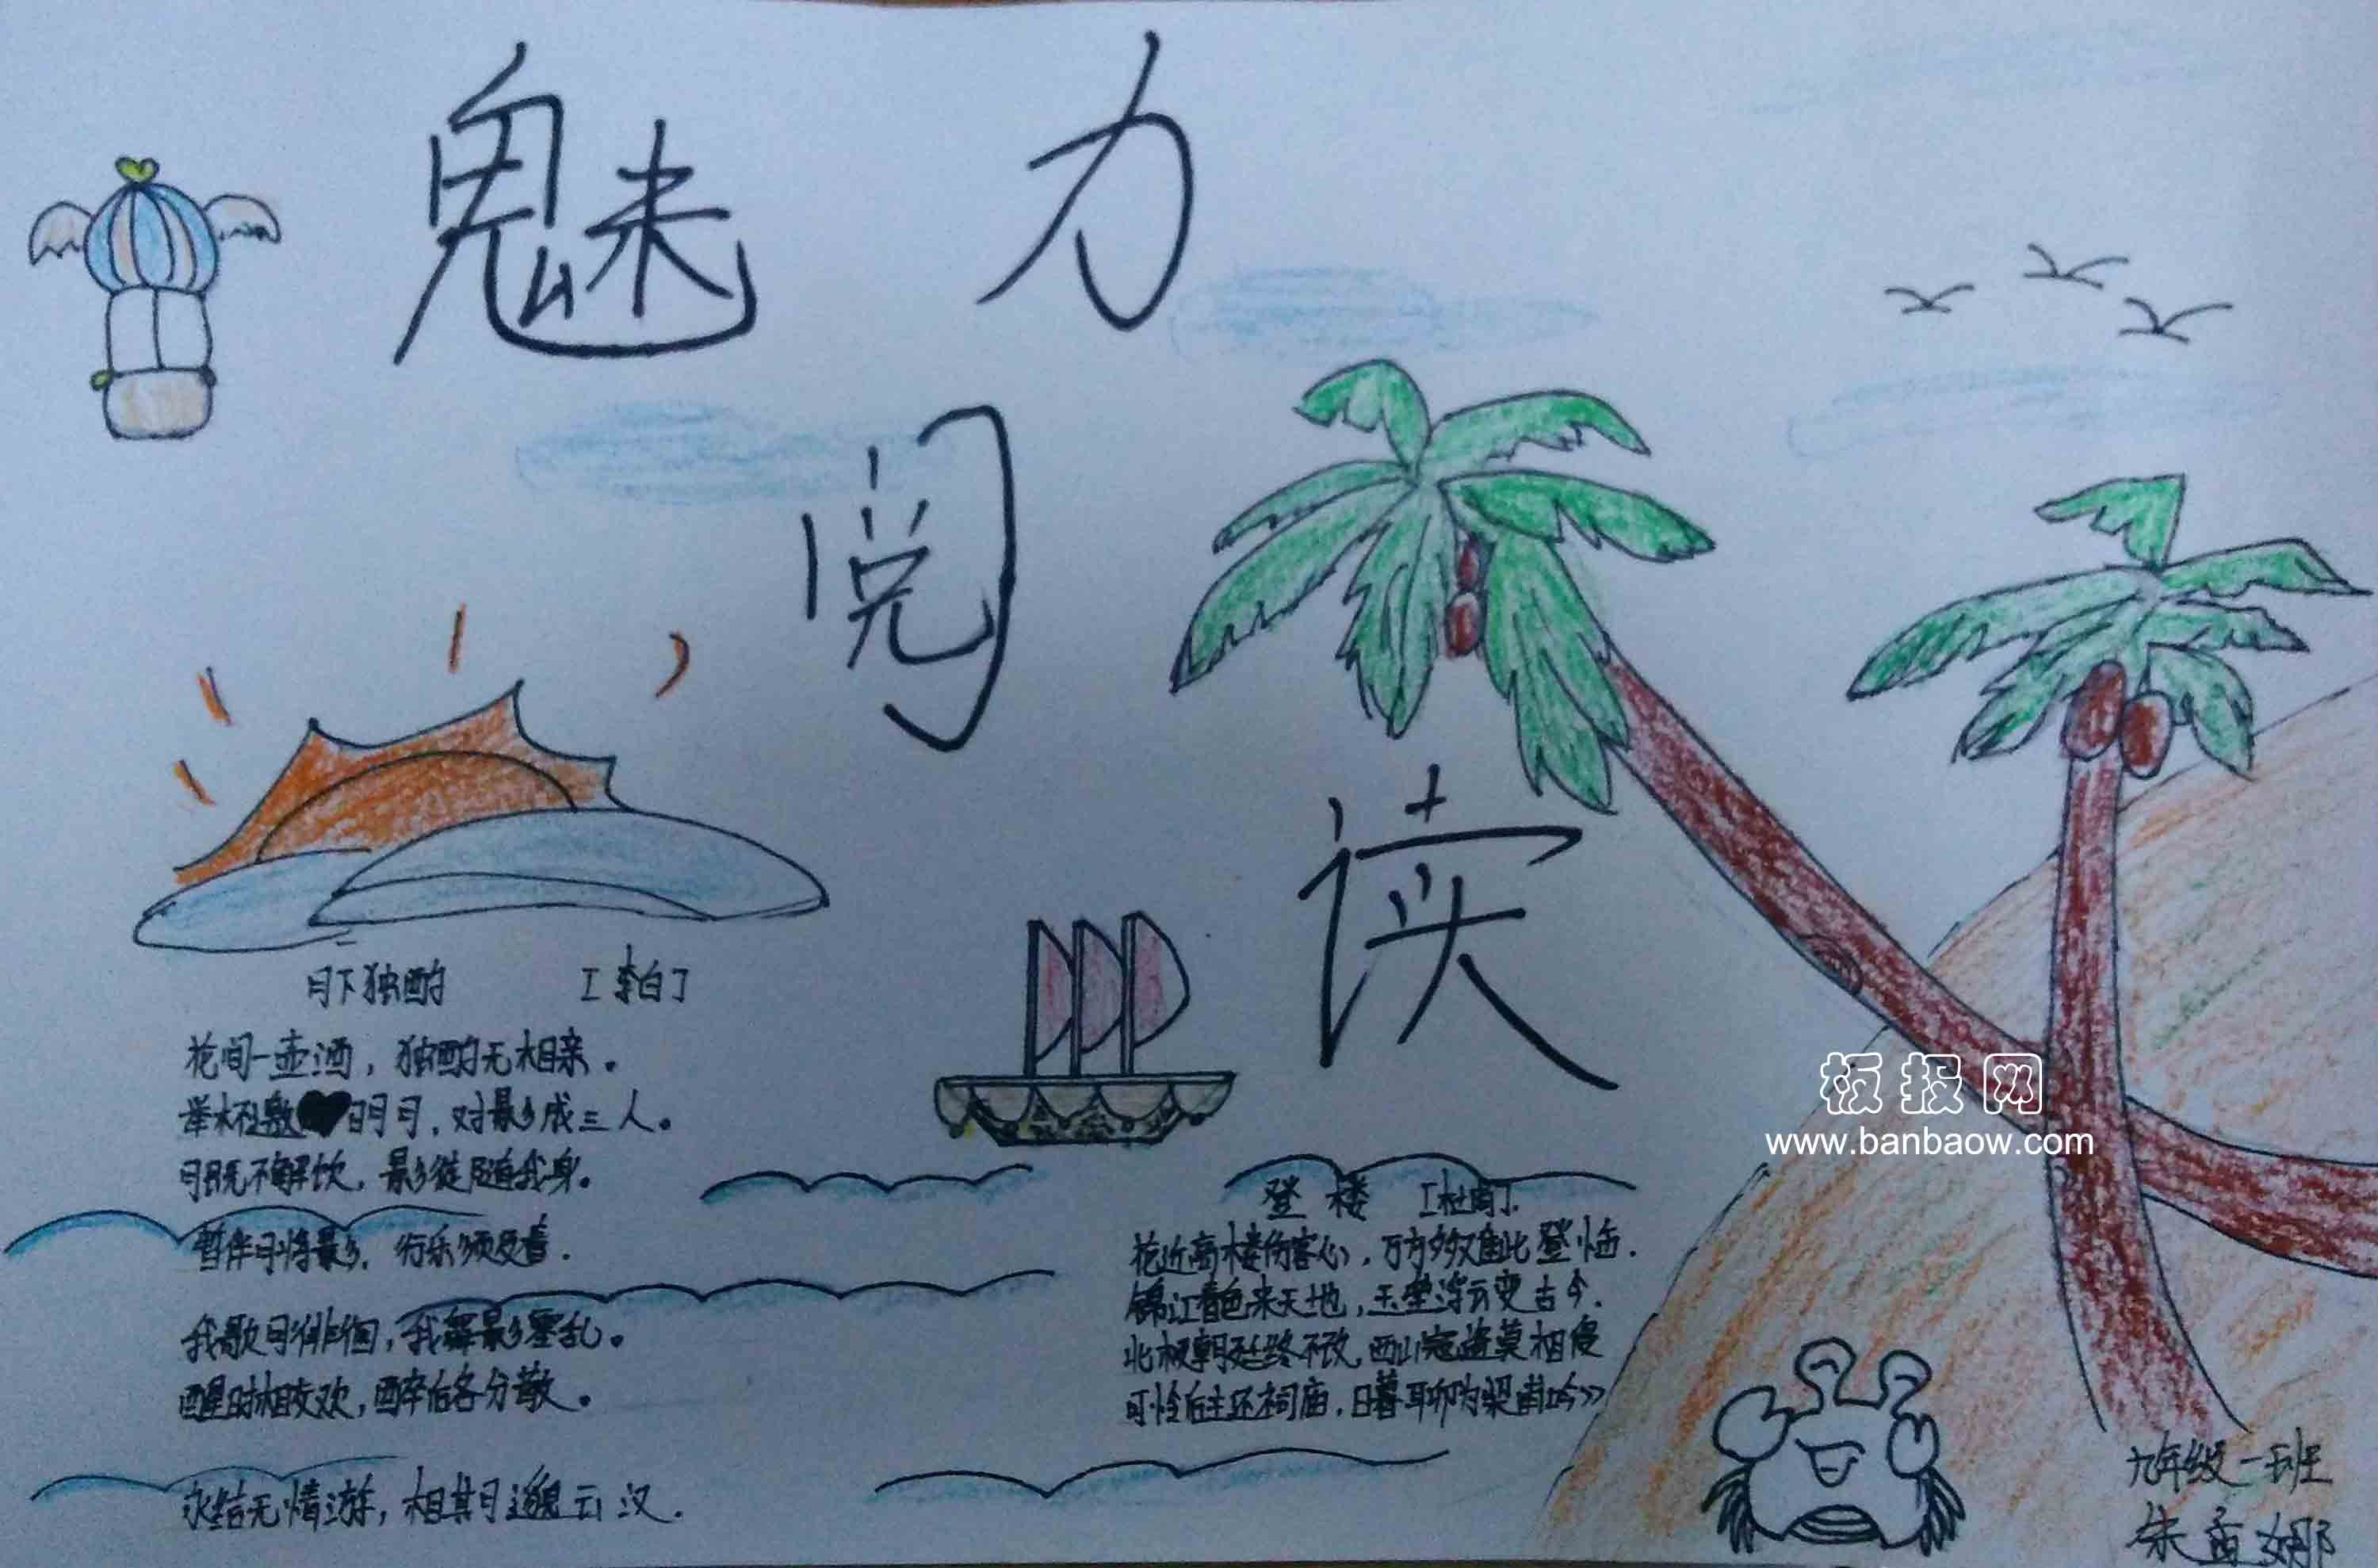 魅力
阅
读
月下独酌 [李白]
花间一壶酒，独酌无相亲。
举杯邀明月，对影成三人。
月既不解饮，影徒随我身。
暂伴月将影，行乐须及春。
我歌月徘徊，我舞影零乱。
醒时相交欢，醉后各分散。
永结无情游，相期邈云汉。
登楼 [杜甫]
花近高楼伤客心，万方多难此登临。
锦江春色来天地，玉垒浮云变古今。
北极朝廷终不改，西山寇盗莫相侵
可怜后主还祠庙，日暮聊为梁甫吟》
板报网
www.banbaow.com
九年级一班
朱孟娜